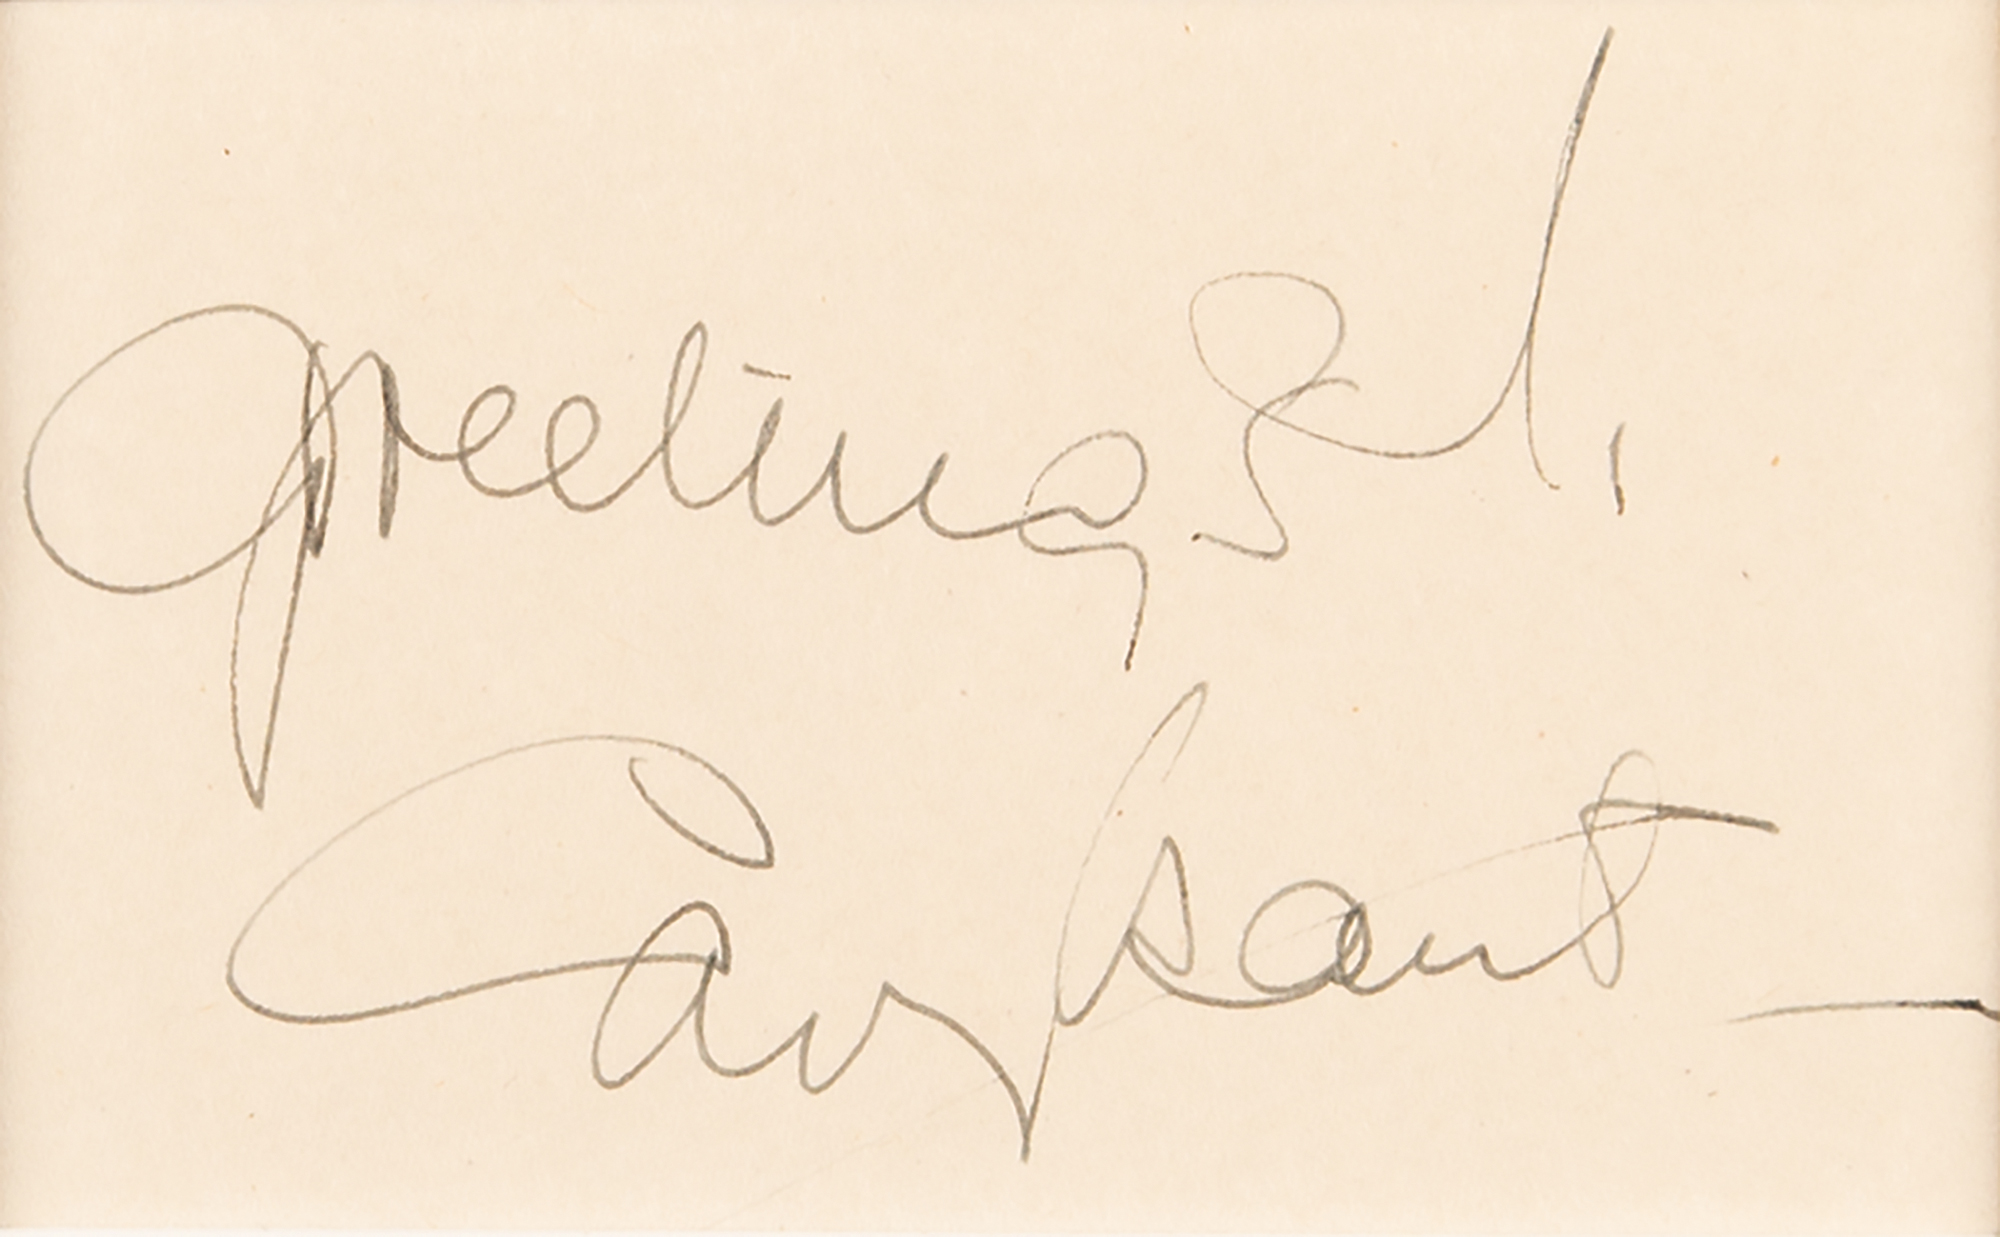 Greetings!.
Cary Grant